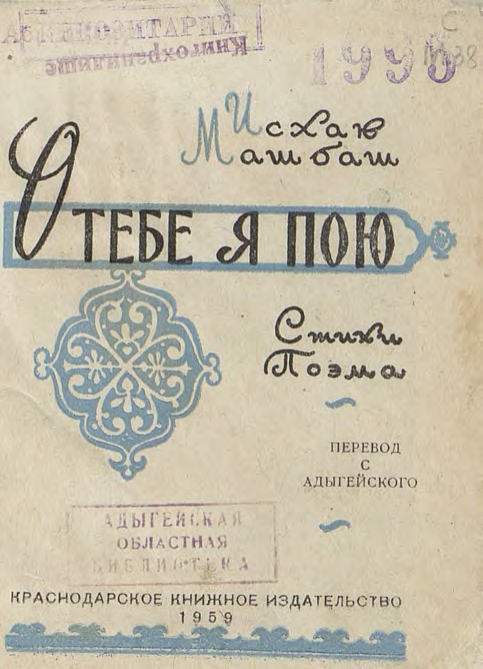 ДЕПОЗИТАРИЙ
Книгохранилище
1996
С
М38
Исхак
Машбаш
О ТЕБЕ Я ПОЮ
Стихи
Поэма
ПЕРЕВОД
С
АДЫГЕЙСКОГО
АДЫГЕЙСКАЯ
ОБЛАСТНАЯ
БИБЛИОТЕКА
КРАСНОДАРСКОЕ КНИЖНОЕ ИЗДАТЕЛЬСТВО
1959